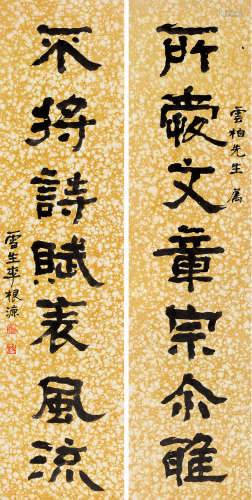 所愛文章宗尒雅
雲柏先生屬
不將詩賦表風流
雪生李根源